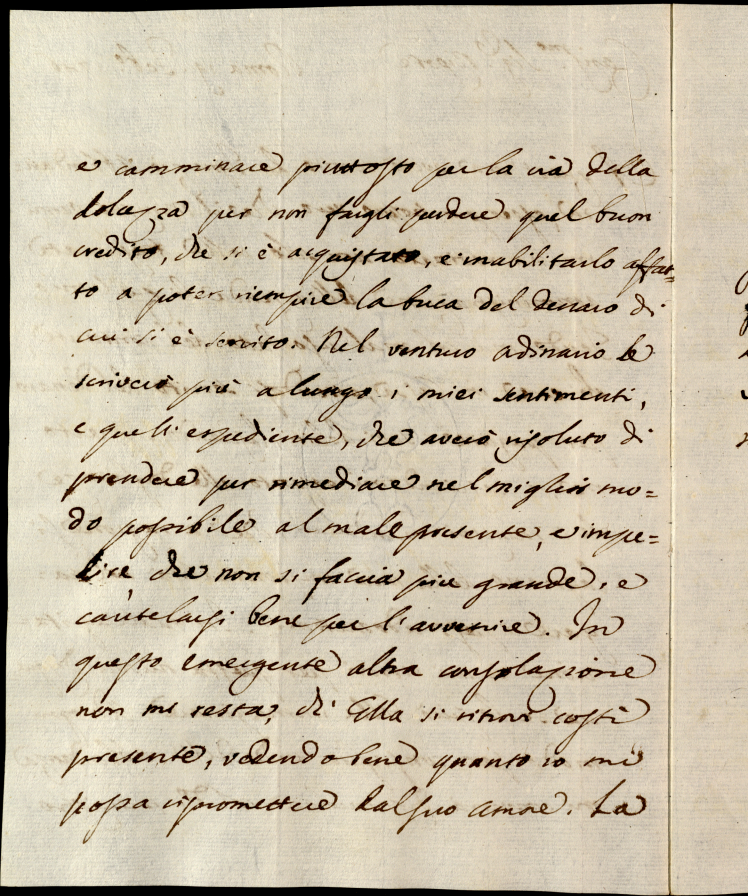 e camminare piuttosto per la via della
dolcezza per non fargli perdere quel buon
credito, che si è acquistato, e inabilitarlo affat=
to a poter riempire la buca del denaro di
cui si è servito. Nel venturo ordinario le
scriverò più a lungo i miei sentimenti,
e quell'espediente, che averò risoluto di
prendere per rimediare nel miglior mo=
do possibile al male presente, e impe=
dire che non si faccia più grande, e
cautelarsi bene per l'avvenire. In
questo emergente altra consolazione
non mi resta, ch'Ella si ritrovi costì
presente, vedendo bene quanto io mi
possa ripromettere dal suo amore. La